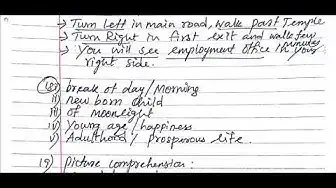 → Turn Left in main road, walk past Temple
→ Turn Right in first exit and walk few minutes
→ You will see employment office in your
right side.
18) i) break of day/Morning
ii) new born child
iii) of moonlight
iv) Young age/happiness
v) Adulthood / prosperous life.
19) Picture comprehension: